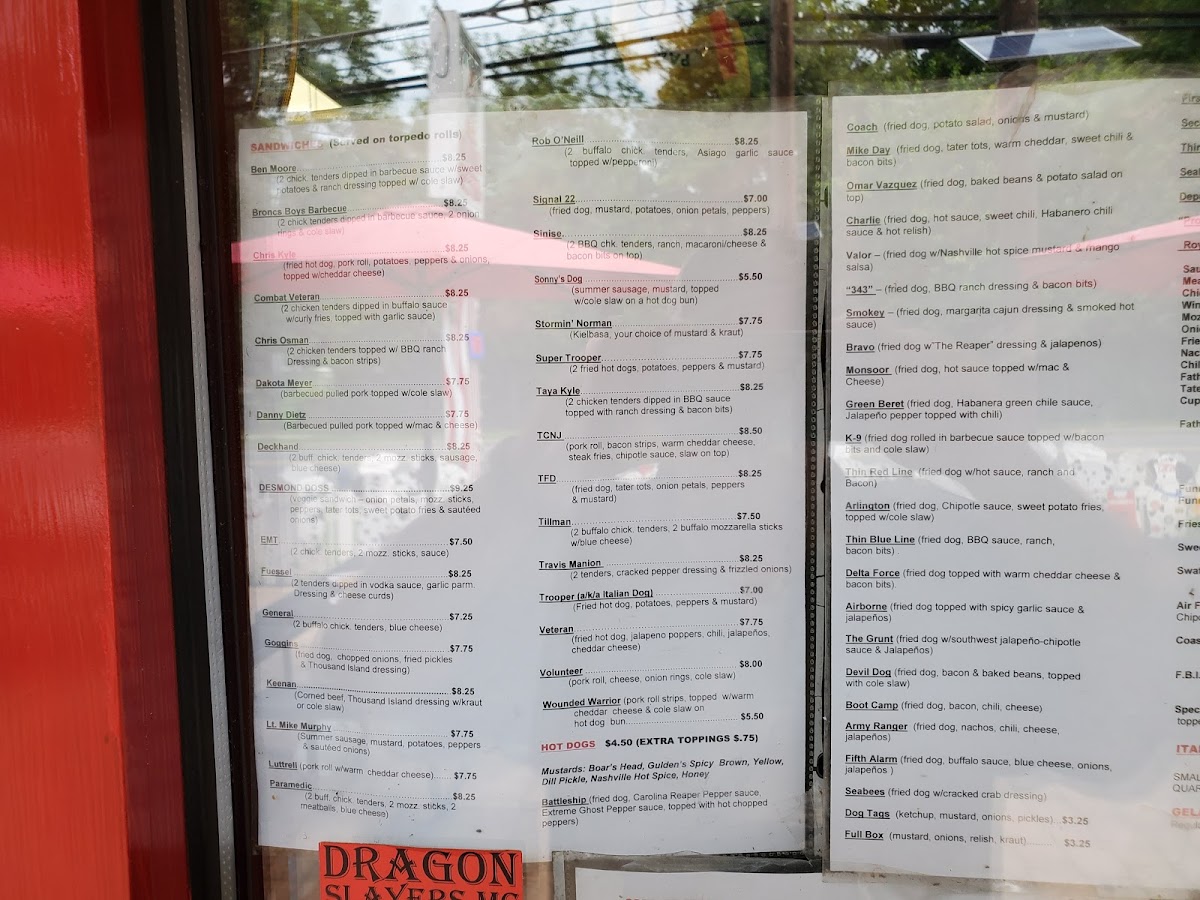 SANDWICHES (Served on torpedo rolls)
Ben Moore........$8.25
(2 chick. tenders dipped in barbecue sauce w/sweet
potatoes & ranch dressing topped w/ cole slaw)
Bronca Boys Barbecue........$8.25
(2 chick tenders dipped in barbecue sauce, 2 onion
rings & cole slaw)
Chris Kyle........$8.25
(fried hot dog, pork roll, potatoes, peppers & onions,
topped w/cheddar cheese)
Combat Veteran........$8.25
(2 chicken tenders dipped in buffalo sauce
w/curly fries, topped with garlic sauce)
Chris Osman........$8.25
(2 chicken tenders topped w/ BBQ ranch
Dressing & bacon strips)
Dakota Meyer........$7.75
(barbecued pulled pork topped w/cole slaw)
Danny Dietz........$7.75
(Barbecued pulled pork topped w/mac & cheese)
Deckhand........$8.25
(2 buff. chick. tenders, 2 mozz. sticks, sausage,
blue cheese)
DESMOND DOSS........$9.25
(veggie sandwich – onion petals, mozz. sticks,
peppers, tater tots, sweet potato fries & sautéed
onions)
EMT........$7.50
(2 chick. tenders, 2 mozz. sticks, sauce)
Fuessel........$8.25
(2 tenders dipped in vodka sauce, garlic parm.
Dressing & cheese curds)
General........$7.25
(2 buffalo chick. tenders, blue cheese)
Goggins........$7.75
(fried dog, chopped onions, fried pickles
& Thousand Island dressing)
Keenan........$8.25
(Corned beef, Thousand Island dressing w/kraut
or cole slaw)
Lt. Mike Murphy........$7.75
(Summer sausage, mustard, potatoes, peppers
& sautéed onions)
Luttrell (pork roll w/warm cheddar cheese)......$7.75
Paramedic........$8.25
(2 buff. chick. tenders, 2 mozz. sticks, 2
meatballs, blue cheese)
Rob O'Neill........$8.25
(2 buffalo chick. tenders, Asiago garlic sauce
topped w/pepperoni)
Signal 22........$7.00
(fried dog, mustard, potatoes, onion petals, peppers)
Sinise........$8.25
(2 BBQ chk. tenders, ranch, macaroni/cheese &
bacon bits on top)
Sonny's Dog........$5.50
(summer sausage, mustard, topped
w/cole slaw on a hot dog bun)
Stormin' Norman........$7.75
(Kielbasa, your choice of mustard & kraut)
Super Trooper........$7.75
(2 fried hot dogs, potatoes, peppers & mustard)
Taya Kyle........$8.25
(2 chicken tenders dipped in BBQ sauce
topped with ranch dressing & bacon bits)
TCNJ........$8.50
(pork roll, bacon strips, warm cheddar cheese,
steak fries, chipotle sauce, slaw on top)
TFD........$8.25
(fried dog, tater tots, onion petals, peppers
& mustard)
Tillman........$7.50
(2 buffalo chick. tenders, 2 buffalo mozzarella sticks
w/blue cheese)
Travis Manion........$8.25
(2 tenders, cracked pepper dressing & frizzled onions)
Trooper (a/k/a Italian Dog)........$7.00
(Fried hot dog, potatoes, peppers & mustard)
Veteran........$7.75
(fried hot dog, jalapeno poppers, chili, jalapeños,
cheddar cheese)
Volunteer........$8.00
(pork roll, cheese, onion rings, cole slaw)
Wounded Warrior (pork roll strips, topped w/warm
cheddar cheese & cole slaw on
hot dog bun........$5.50
HOT DOGS $4.50 (EXTRA TOPPINGS $.75)
Mustards: Boar's Head, Gulden's Spicy Brown, Yellow,
Dill Pickle, Nashville Hot Spice, Honey
Battleship (fried dog, Carolina Reaper Pepper sauce,
Extreme Ghost Pepper sauce, topped with hot chopped
peppers)
Coach (fried dog, potato salad, onions & mustard)
Mike Day (fried dog, tater tots, warm cheddar, sweet chili &
bacon bits)
Omar Vazquez (fried dog, baked beans & potato salad on
top)
Charlie (fried dog, hot sauce, sweet chili, Habanero chili
sauce & hot relish)
Valor – (fried dog w/Nashville hot spice mustard & mango
salsa)
"343" – (fried dog, BBQ ranch dressing & bacon bits)
Smokey – (fried dog, margarita cajun dressing & smoked hot
sauce)
Bravo (fried dog w"The Reaper" dressing & jalapenos)
Monsoor (fried dog, hot sauce topped w/mac &
Cheese)
Green Beret (fried dog, Habanera green chile sauce,
Jalapeño pepper topped with chili)
K-9 (fried dog rolled in barbecue sauce topped w/bacon
bits and cole slaw)
Thin Red Line (fried dog w/hot sauce, ranch and
Bacon)
Arlington (fried dog, Chipotle sauce, sweet potato fries,
topped w/cole slaw)
Thin Blue Line (fried dog, BBQ sauce, ranch,
bacon bits)
Delta Force (fried dog topped with warm cheddar cheese &
bacon bits)
Airborne (fried dog topped with spicy garlic sauce &
jalapeños)
The Grunt (fried dog w/southwest jalapeño-chipotle
sauce & Jalapeños)
Devil Dog (fried dog, bacon & baked beans, topped
with cole slaw)
Boot Camp (fried dog, bacon, chili, cheese)
Army Ranger (fried dog, nachos, chili, cheese,
jalapeños)
Fifth Alarm (fried dog, buffalo sauce, blue cheese, onions,
jalapeños )
Seabees (fried dog w/cracked crab dressing)
Dog Tags (ketchup, mustard, onions, pickles)..$3.25
Full Box (mustard, onions, relish, kraut)........$3.25
DRAGON
SLAYERS MC